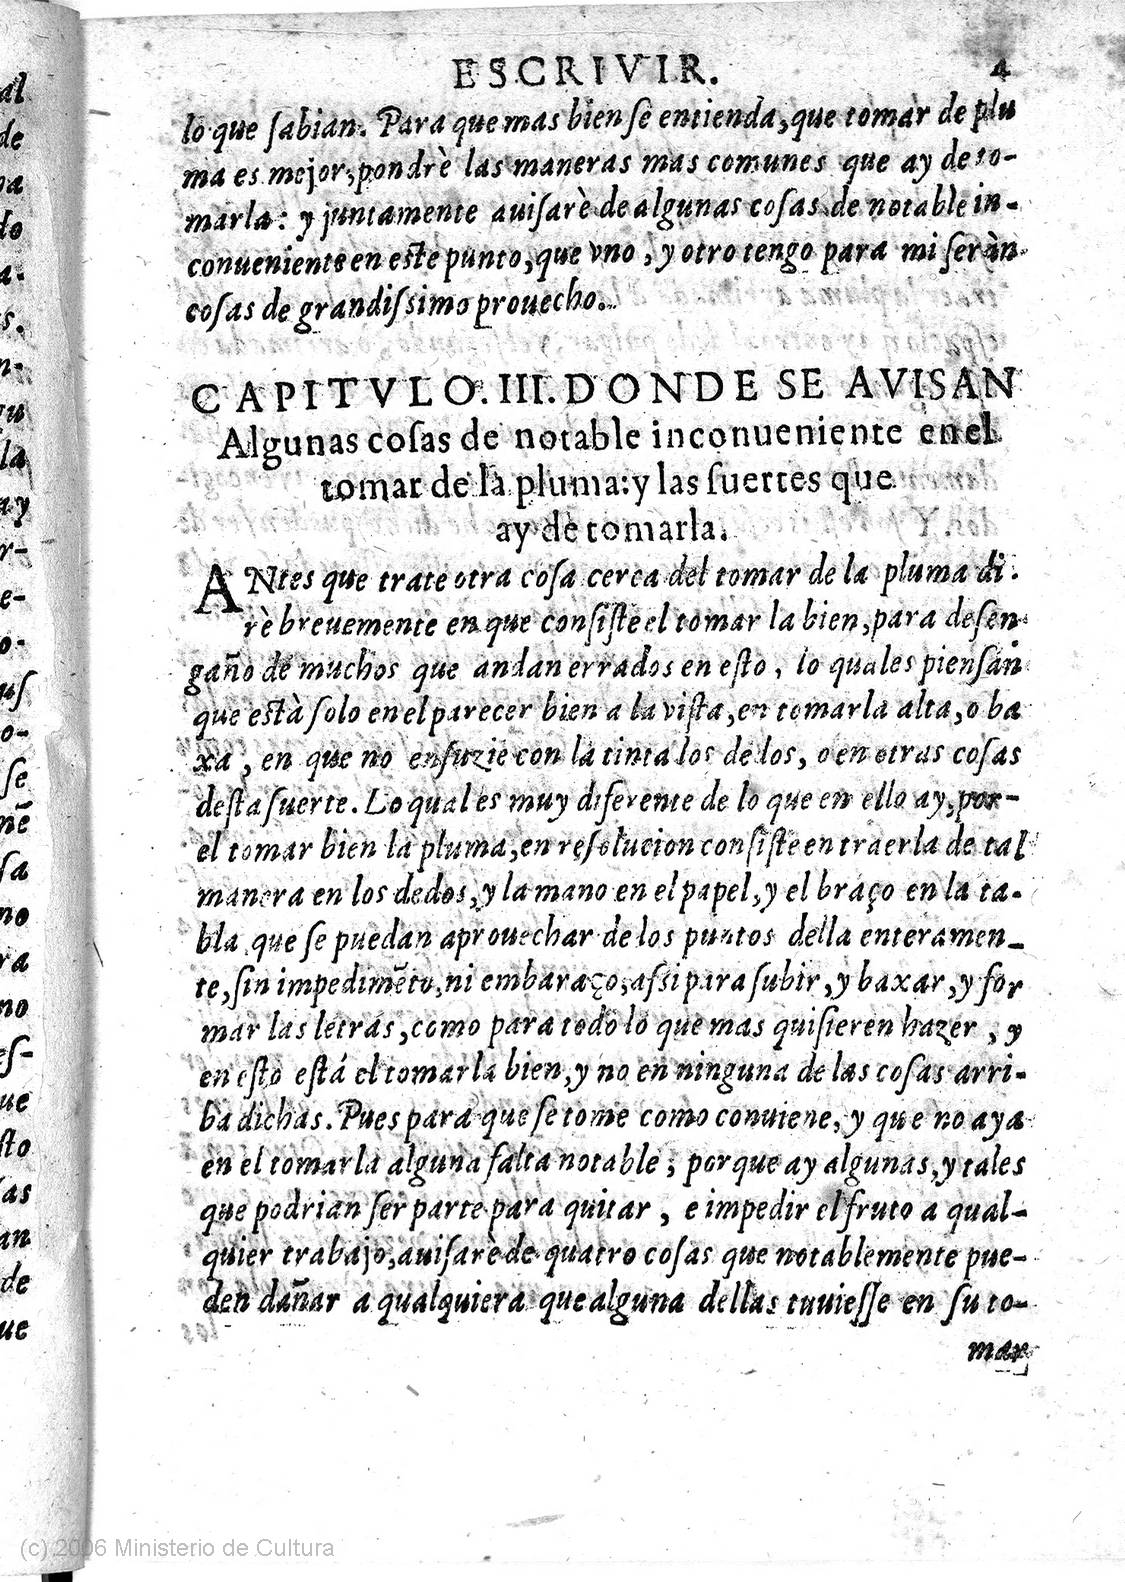 ESCRIVIR. 4
lo que ſabian. Para que mas bien ſe entienda, que tomar de plu
ma es mejor, pondrè las maneras mas comunes que ay de to-
marla: y juntamente auiſarè de algunas coſas de notable in-
conueniente en eſte punto, que vno, y otro tengo para mi ſeràn
coſas de grandiſsimo prouecho.
CAPITVLO. III. DONDE SE AVISAN
Algunas coſas de notable inconueniente en el
tomar de la pluma: y las ſuertes que
ay de tomarla.
ANtes que trate otra coſa cerca del tomar de la pluma di.
rè breuemente en que conſiſte el tomar la bien, para deſen-
gaño de muchos que andan errados en eſto, lo quales pienſan
que eſtà ſolo en el parecer bien a la viſta, en tomarla alta, o ba
xa, en que no enſuzie con la tinta los dedos, o en otras coſas
deſta ſuerte. Lo qual es muy diferente de lo que en ello ay, por-
el tomar bien la pluma, en reſolucion conſiſte en traerla de tal
manera en los dedos, y la mano en el papel, y el braço en la ta-
bla que ſe puedan aprouechar de los puntos della enteramen-
te, ſin impedimẽto, ni embaraço, aſsi para ſubir, y baxar, y for
mar las letras, como para todo lo que mas quiſieren hazer, y
en eſto eſtá el tomarla bien, y no en ninguna de las coſas arri-
ba dichas. Pues para que ſe tome como conuiene, y que no aya
en el tomarla alguna falta notable; porque ay algunas, y tales
que podrian ſer parte para quitar, e impedir el fruto a qual-
quier trabajo, auiſarè de quatro coſas que notablemente pue-
den dañar a qualquiera que alguna dellas tuuieſſe en ſu to-
mar
(c) 2006 Ministerio de Cultura